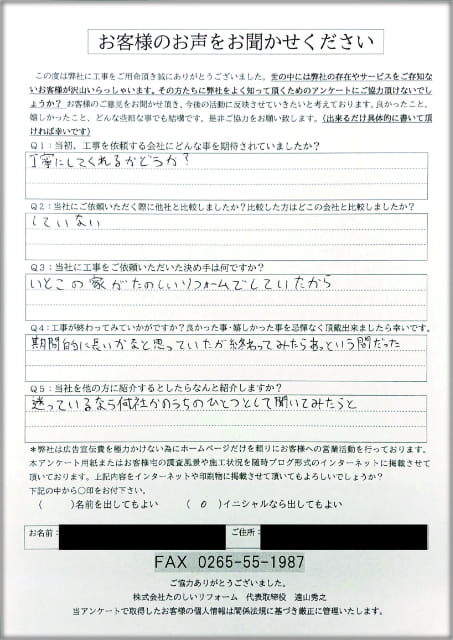 お客様のお声をお聞かせください
この度は弊社に工事をご用命頂き誠にありがとうございました。世の中には弊社の存在やサービスをご存知ない
お客様が沢山いらっしゃいます。その方たちに弊社をよく知って頂くためのアンケートにご協力頂けないでし
ょうか？ お客様のご意見をお聞かせ頂き、今後の活動に反映させていきたいと考えております。良かったこと、
嬉しかったこと、どんな些細な事でも結構です。是非ご協力をお願い致します。（出来るだけ具体的に書いて頂
ければ幸いです）
Q1：当初、工事を依頼する会社にどんな事を期待されていましたか？
丁寧にしてくれるかどうか？
Q2：当社にご依頼いただく際に他社と比較しましたか？比較した方はどこの会社と比較しましたか？
していない
Q3：当社に工事をご依頼いただいた決め手は何ですか？
いとこの家がたのしいリフォームでしていたから
Q4：工事が終わってみていかがですか？良かった事・嬉しかった事を忌憚なく頂戴出来ましたら幸いです。
期間的に長いかなと思っていたが終わってみたらあっという間だった
Q5：当社を他の方に紹介するとしたらなんと紹介しますか？
迷っているなら何社かのうちのひとつとして聞いてみたらと
＊弊社は広告宣伝費を極力かけない為にホームページだけを頼りにお客様への営業活動を行っております。
本アンケート用紙またはお客様宅の調査風景や施工状況を随時ブログ形式のインターネットに掲載させて
頂いております。上記内容をインターネットや印刷物に掲載させて頂いてもよろしいでしょうか？
下記の中から〇印をお付下さい。
（　　）名前を出してもよい　　（ ○ ）イニシャルなら出してもよい
お名前：　　ご住所：
FAX 0265-55-1987
ご協力ありがとうございました。
株式会社たのしいリフォーム　代表取締役　遠山秀之
当アンケートで取得したお客様の個人情報は関係法規に基づき厳正に管理いたします。